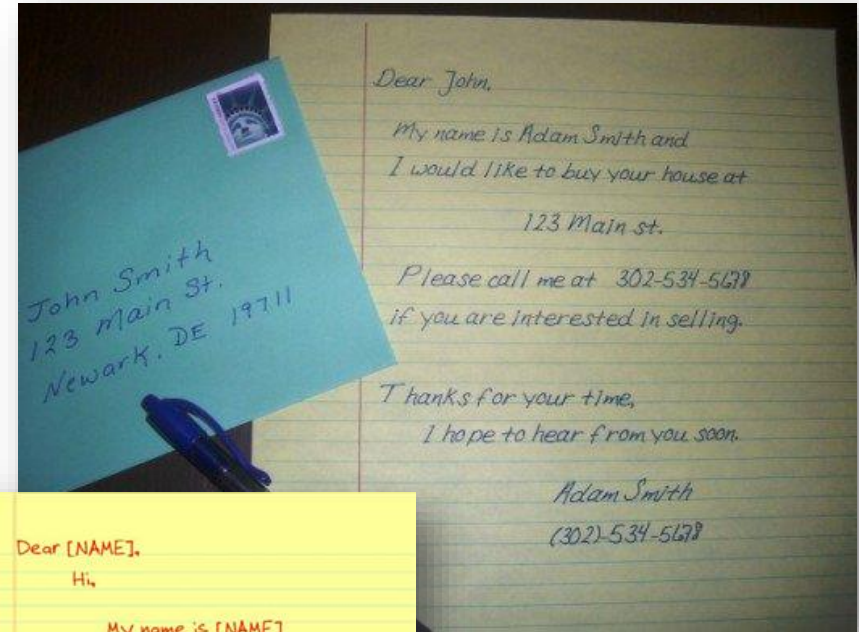 John Smith
123 Main St.
Newark, DE 19711
Dear John,
My name is Adam Smith and
I would like to buy your house at
123 Main st.
Please call me at 302-534-5678
if you are interested in selling.
Thanks for your time,
I hope to hear from you soon.
Adam Smith
(302)-534-5678
Dear [NAME],
Hi,
My name is [NAME]